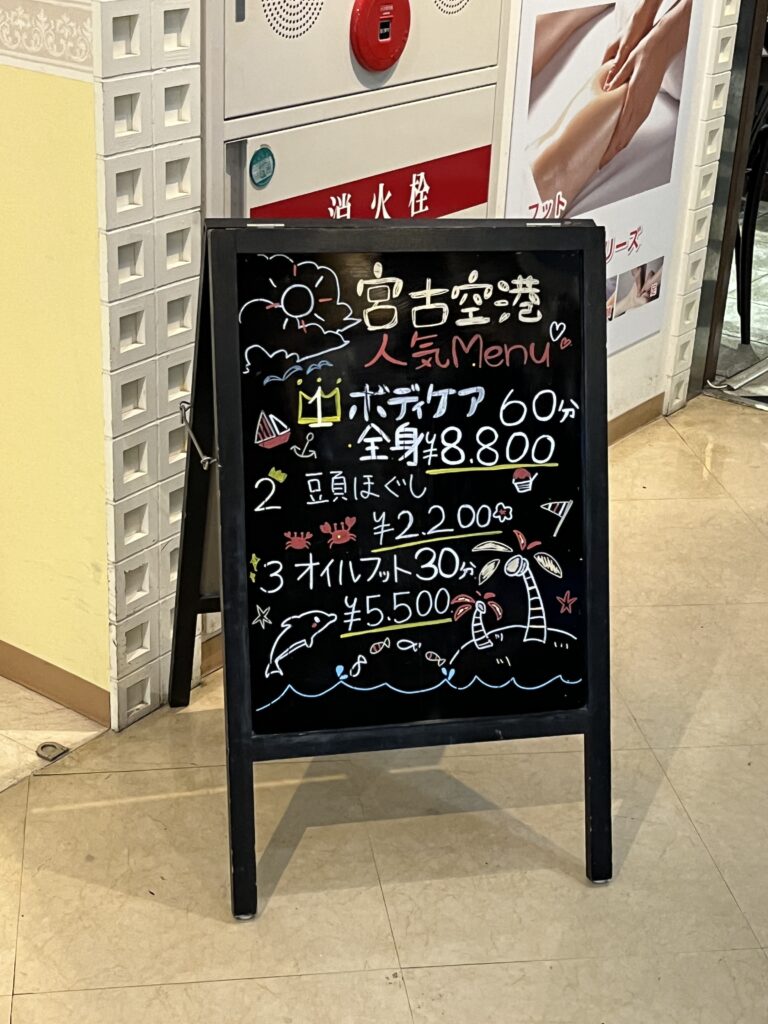 消火栓
フット
リーズ
宮古空港
人気Menu
1 ボディケア 60分
全身¥8.800
2 頭ほぐし
¥2.200
3 オイルフット30分
¥5.500